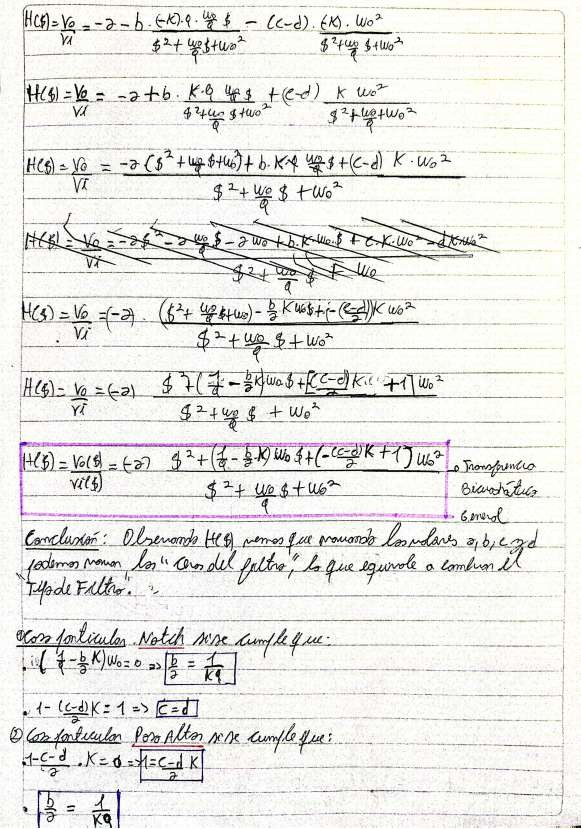 H($) = Vo/Vi = -a - b · (-K)·q · wo/q $ / ($² + wo/q $ + wo²) - (c-d) · (-K) · wo² / ($² + wo/q $ + wo²)
H($) = Vo/Vi = -a + b · K·q wo/q $ / ($² + wo/q $ + wo²) + (c-d) K wo² / ($² + wo/q + wo²)
H($) = Vo/Vi = -a ($² + wo/q $ + wo²) + b·K·q wo/q $ + (c-d) K·wo² / ($² + wo/q $ + wo²)
H($) = Vo/Vi = -a$² - a wo/q $ - a wo + b·K·wo·$ + c·K·wo² - dK·wo² / ($² + wo/q $ + wo)
H($) = Vo/Vi = (-a) · ($² + wo/q $ + wo) - b/a K wo $ + (-(c-d)/a) K wo² / ($² + wo/q $ + wo²)
H($) = Vo/Vi = (-a) $² + (1/q - b/a K) wo $ + [(c-d)/a K + 1] wo² / ($² + wo/q $ + wo²)
H($) = Vo($)/Vi($) = (-a) $² + (1/q - b/a K) wo $ + (-(c-d)/a K + 1] wo² / ($² + wo/q $ + wo²)
• Transferencia
Bicuadrática
General
Conclusión: Observando H($) vemos que variando los valores a, b, c y d
podemos variar los "ceros del filtro", lo que equivale a cambiar el
"Tipo de Filtro".
① Caso particular Notch si se cumple que:
• (1/q - b/a K) wo = 0 => b/a = 1/Kq
• 1 - (c-d)/a K = 1 => c = d
② Caso particular Paso Altos si se cumple que:
• 1 - c-d/a · K = 0 => 1 = c-d/a K
• b/a = 1/Kq